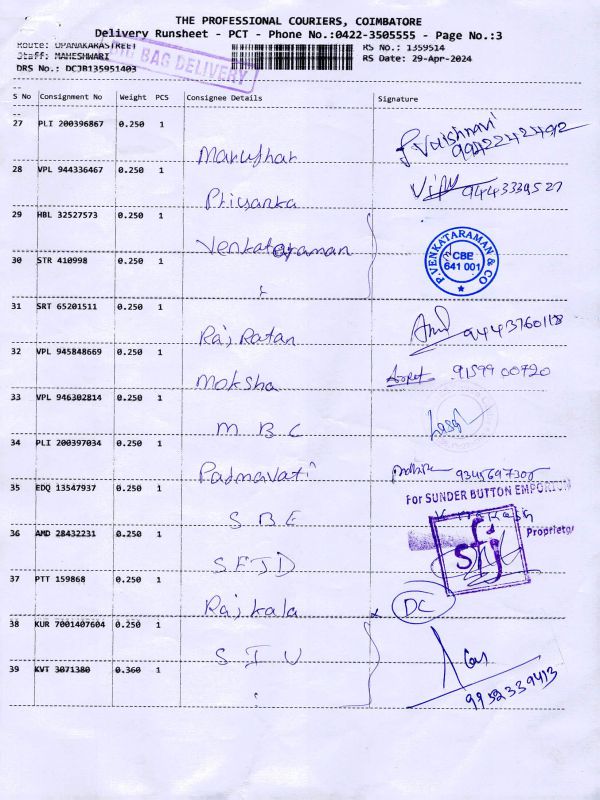 THE PROFESSIONAL COURIERS, COIMBATORE
Delivery Runsheet - PCT - Phone No.:0422-3505555 - Page No.:3
Route: OPANAKARASTREET
RS No.: 1359514
BAG DELIVERY
Staff: MAHESHWARI
RS Date: 29-Apr-2024
DRS No.: DCJR135951403
S No Consignment No Weight PCS Consignee Details Signature
27 PLI 200396867 0.250 1 Vaishnavi
Marudhar 9942242492
28 VPL 944336467 0.250 1 9443339527
Priyanka
29 HBL 32527573 0.250 1
Venkataraman
P.VENKATARAMAN & CO
CBE
641 001
30 STR 410998 0.250 1
31 SRT 65201511 0.250 1
Raj Ratan 9443760118
32 VPL 945848669 0.250 1 9159900720
Moksha
33 VPL 946302814 0.250 1
M B C
34 PLI 200397034 0.250 1
Padmavati 9345697305
35 EDQ 13547937 0.250 1 For SUNDER BUTTON EMPORIUM
S.B.E
36 AMD 28432231 0.250 1 Proprietor
sfj
S F J D
37 PTT 159868 0.250 1
Rajkala DC
38 KUR 7001407604 0.250 1
S I U
39 KVT 3071380 0.360 1 9952339413